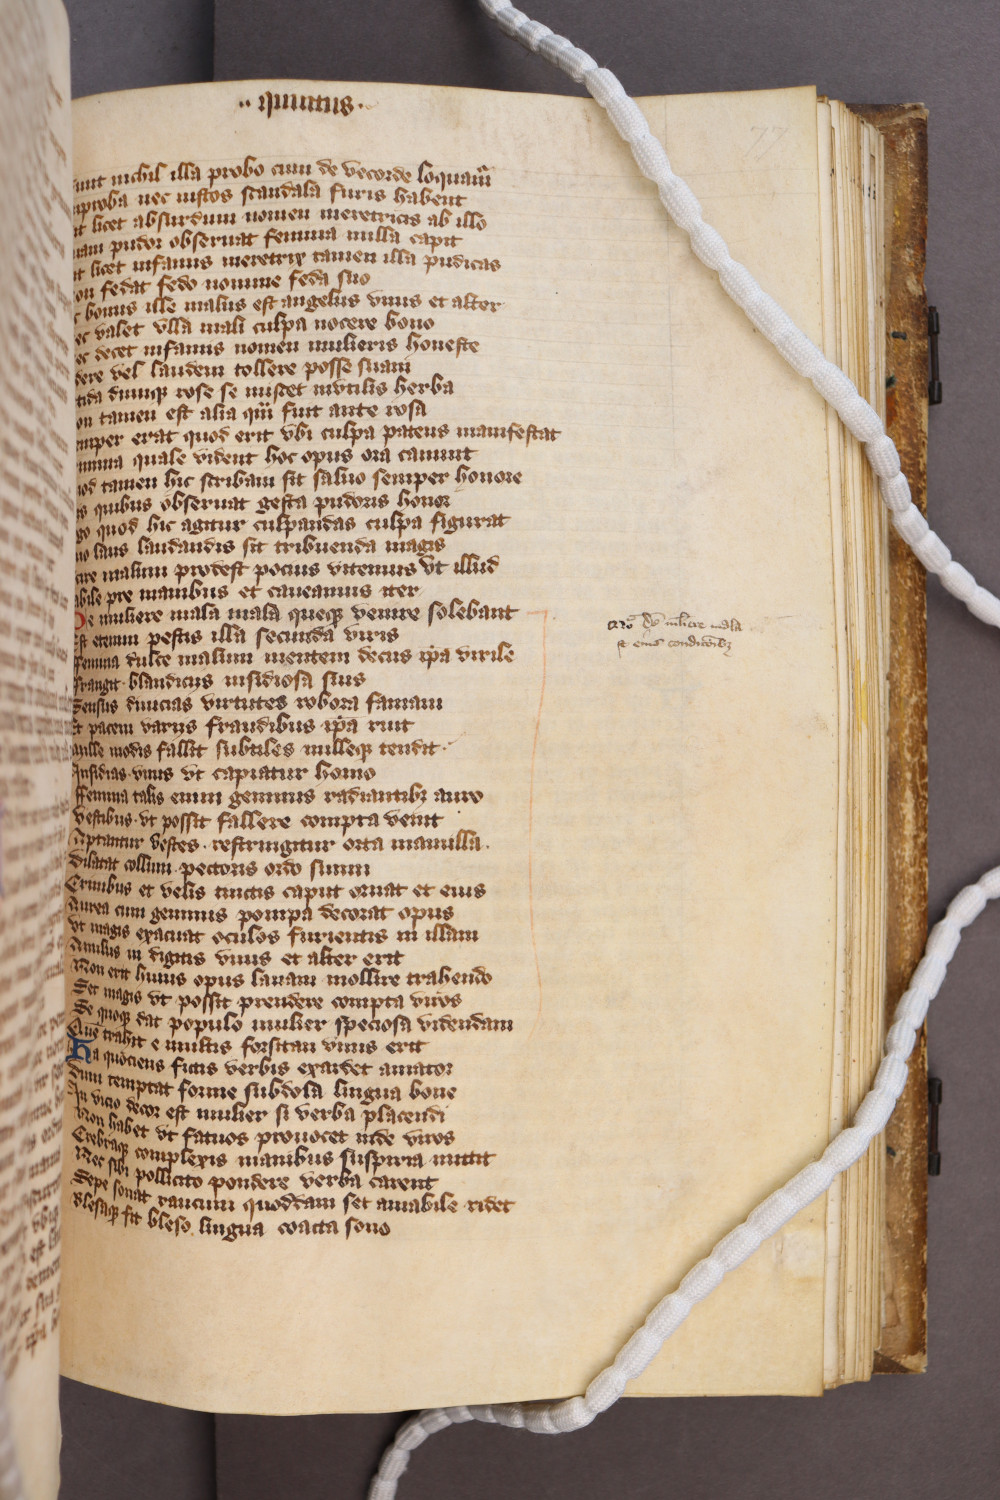 ·· quintus ·
77
sunt nichil illa probo cum de vecorde loquam̄
nproba nec iustos scandala furis habent
it licet absurdum nomen meretricis ab illo
nam pudor obseruat femina nulla capit
it licet infamis meretrix tamen illa pudicas
on fedat fedo nomine feda suo
c bonus ille malus est angelus vnus et alter
ec valet vlla mali culpa nocere bono
ec decet infamis nomen mulieris honeste
dere vel laudem tollere posse suam
tida dumq rose se miscet invtilis herba
on tamen est alia qm̄ fuit ante rosa
emper erat quod erit vbi culpa patens manifestat
mnia quale vident hoc opus ora canunt
uod tamen hic scribam sit saluo semper honore
is quibus obseruat gesta pudoris honor
go quod hic agitur culpandas culpa figurat
uo laus laudandis sit tribuenda magis
cire malum prodest pocius vitemus vt illud
abile pre manibus et caueamus iter
De muliere mala mala queq venire solebant
Est etenim pestis illa secunda viris
Femina dulce malum mentem decus ipa virile
Frangit blandiciis insidiosa suis
Sensus diuicias virtutes robora famam
Et pacem variis fraudibus ipa ruit
Mille modis fallit subtiles milleq tendit ·
Insidias vnus vt capiatur homo
Femina talis enim gemmis radiantib auro
Vestibus vt possit fallere compta venit
Aptantur vestes · restringitur orta mamilla ·
Dilatat collum pectoris ordo suum
Crinibus et velis tinctis caput ornat et eius
Aurea cum gemmis pompa decorat opus
Vt magis exacuat oculos furientis in illam
Anulus in digitis vnus et alter erit
Non erit huius opus lanam mollire trahendo
Set magis vt possit prendere compta viros
Se quoq dat populo mulier speciosa videndam
Quē trahit e multis forsitan vnus erit
Ha quociens fictis verbis exardet amator
Dum temptat forme subdola lingua bone
In vicio decor est mulier si verba placendi
Non habet vt fatuos prouocet inde viros
Crebraq complexis manibus suspiria mittit
Nec sibi pollicito pondere verba carent
Sepe sonat raucum quoddam set amabile ridet
Blesaq fit bleso lingua coacta sono
de muliere mala
et eius condicōib